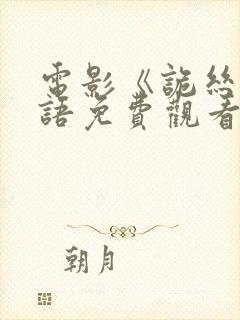 電影《詭絲
語免費觀看
朝月